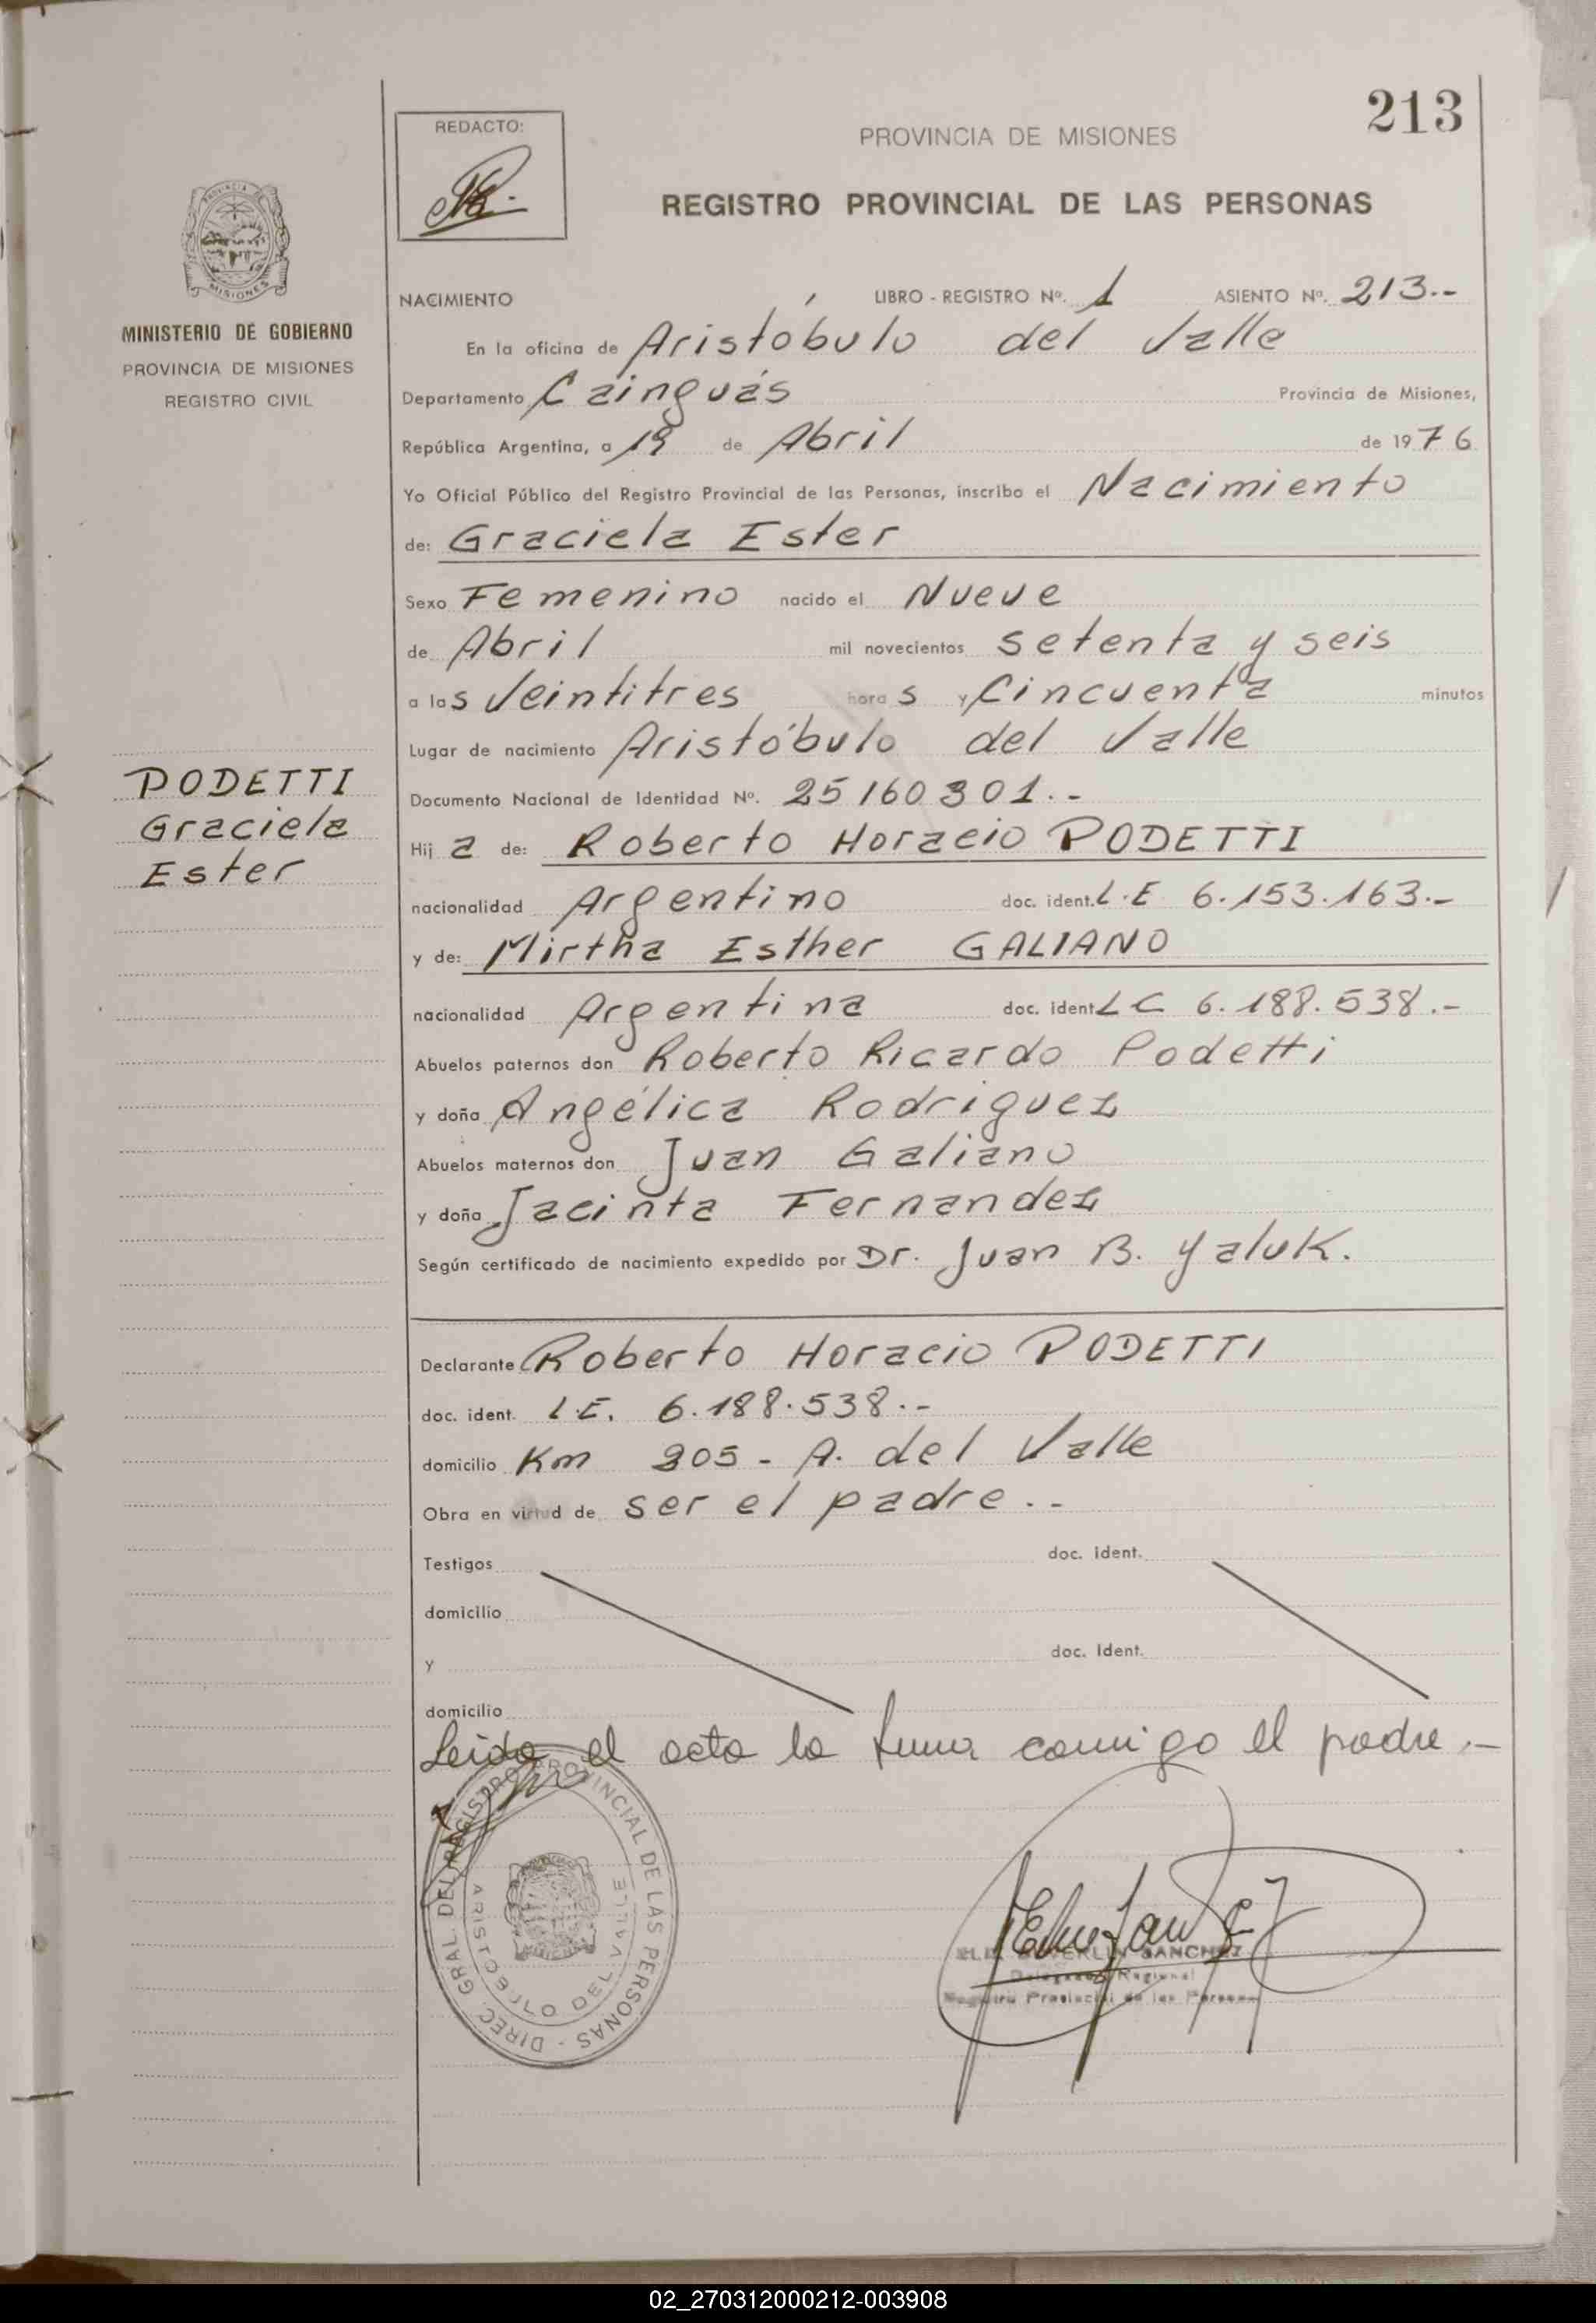 213
REDACTO:
PROVINCIA DE MISIONES
REGISTRO PROVINCIAL DE LAS PERSONAS
PROVINCIA DE
MISIONES
MINISTERIO DE GOBIERNO
PROVINCIA DE MISIONES
REGISTRO CIVIL
NACIMIENTO LIBRO - REGISTRO Nº. 1 ASIENTO Nº. 213.-
En la oficina de Aristóbulo del Valle
Departamento Cainguás Provincia de Misiones,
República Argentina, a 19 de Abril de 1976
Yo Oficial Público del Registro Provincial de las Personas, inscribo el Nacimiento
de: Graciela Ester
Sexo Femenino nacido el Nueve
de Abril mil novecientos setenta y seis
a las Veintitres horas y Cincuenta minutos
Lugar de nacimiento Aristóbulo del Valle
PODETTI
Graciela
Ester
Documento Nacional de Identidad Nº. 25160301.-
Hija de: Roberto Horacio PODETTI
nacionalidad Argentino doc. ident. L.E 6.153.163.-
y de: Mirtha Esther GALIANO
nacionalidad Argentina doc. ident LC 6.188.538.-
Abuelos paternos don Roberto Ricardo Podetti
y doña Angélica Rodriguez
Abuelos maternos don Juan Galiano
y doña Jacinta Fernandez
Según certificado de nacimiento expedido por Dr. Juan B. Yaluk.
Declarante Roberto Horacio PODETTI
doc. ident. L.E. 6.188.538.-
domicilio Km 205 - A. del Valle
Obra en virtud de ser el padre.-
Testigos doc. ident.
domicilio
y doc. ident.
domicilio
Leida el acta la firma conmigo el padre.-
DIREC. GRAL. DEL REGISTRO PROVINCIAL DE LAS PERSONAS -
ARISTOBULO DEL VALLE
SANCHEZ
Delegado Regional
Registro Provincial de las Personas
02_270312000212-003908